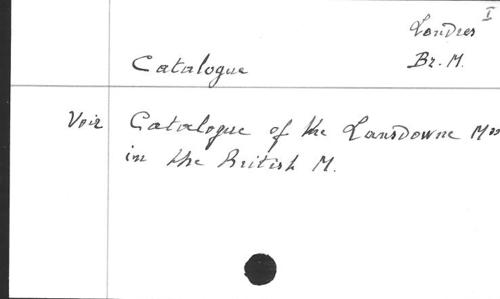 Londres I
Br. M.
Catalogue
Voir Catalogue of the Lansdowne Mss
in the British M.